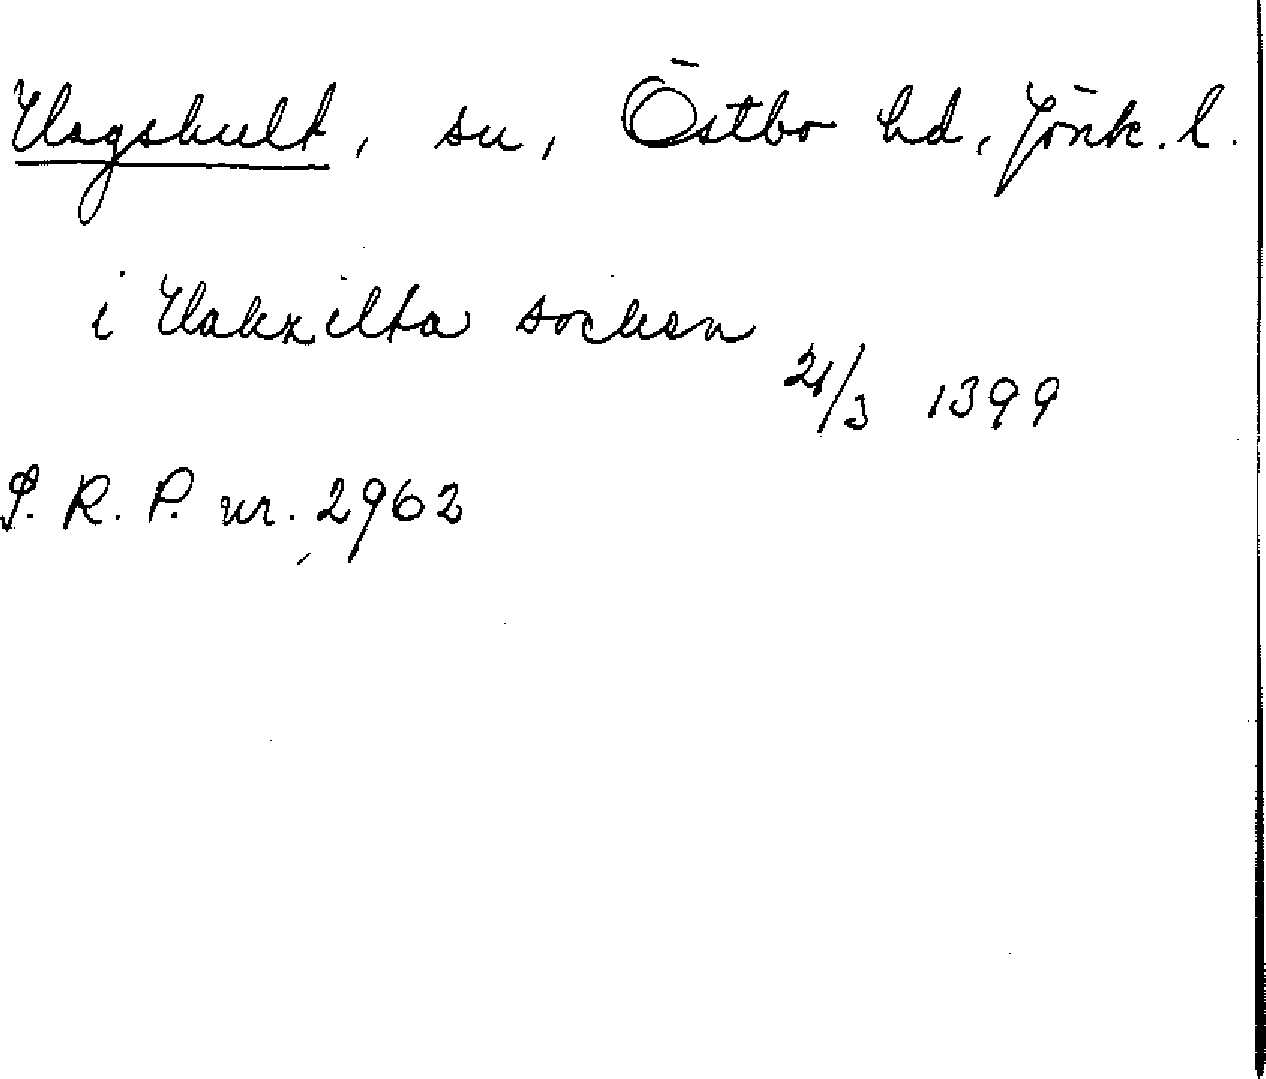 Hagshult, sn, Östbo hd, Jönk. l.
i Hakzilta sochen
21/3 1399
S. R. P. nr. 2962